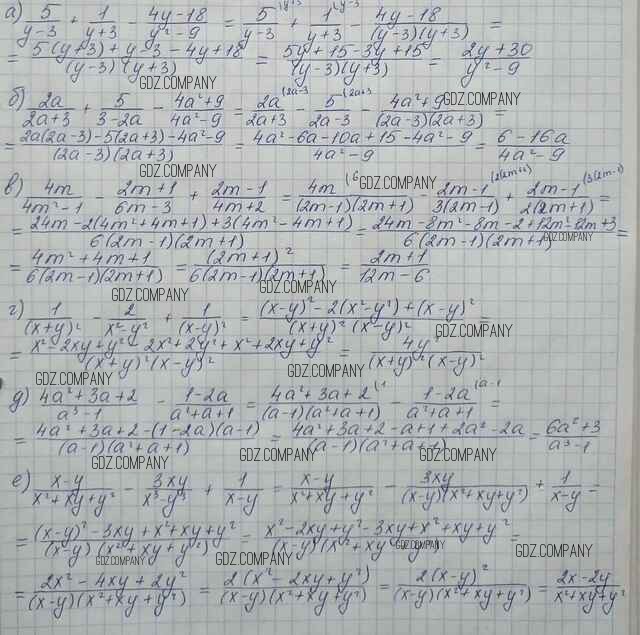 а) 5/(y-3) + 1/(y+3) - (4y-18)/(y²-9) = 5/(y-3) + 1/(y+3) - (4y-18)/((y-3)(y+3)) =
= (5(y+3)+y-3-4y+18)/((y-3)(y+3)) = (5y+15-3y+15)/((y-3)(y+3)) = (2y+30)/(y²-9)
GDZ.COMPANY
б) 2a/(2a+3) + 5/(3-2a) - (4a²+9)/(4a²-9) = 2a/(2a+3) - 5/(2a-3) - (4a²+9)/((2a-3)(2a+3)) =
GDZ.COMPANY
= (2a(2a-3)-5(2a+3)-4a²-9)/((2a-3)(2a+3)) = (4a²-6a-10a+15-4a²-9)/(4a²-9) = (6-16a)/(4a²-9)
GDZ.COMPANY GDZ.COMPANY
в) 4m/(4m²-1) - (2m+1)/(6m-3) + (2m-1)/(4m+2) = 4m/((2m-1)(2m+1)) - (2m-1)/(3(2m-1)) + (2m-1)/(2(2m+1)) =
= (24m-2(4m²+4m+1)+3(4m²-4m+1))/(6(2m-1)(2m+1)) = (24m-8m²-8m-2+12m²-12m+3)/(6(2m-1)(2m+1)) =
GDZ.COMPANY
= (4m²+4m+1)/(6(2m-1)(2m+1)) = (2m+1)²/(6(2m-1)(2m+1)) = (2m+1)/(12m-6)
GDZ.COMPANY GDZ.COMPANY
г) 1/(x+y)² - 2/(x²-y²) + 1/(x-y)² = ((x-y)²-2(x²-y²)+(x-y)²)/((x+y)²(x-y)²) =
GDZ.COMPANY
= (x²-2xy+y²-2x²+2y²+x²+2xy+y²)/((x+y)²(x-y)²) = 4y²/((x+y)²(x-y)²)
GDZ.COMPANY GDZ.COMPANY
д) (4a²+3a+2)/(a³-1) - (1-2a)/(a²+a+1) = (4a²+3a+2)/((a-1)(a²+a+1)) - (1-2a)/(a²+a+1) =
= (4a²+3a+2-(1-2a)(a-1))/((a-1)(a²+a+1)) = (4a²+3a+2-a+1+2a²-2a)/((a-1)(a²+a+1)) = (6a²+3)/(a³-1)
GDZ.COMPANY GDZ.COMPANY GDZ.COMPANY
е) (x-y)/(x²+xy+y²) - 3xy/(x³-y³) + 1/(x-y) = (x-y)/(x²+xy+y²) - 3xy/((x-y)(x²+xy+y²)) + 1/(x-y) =
= ((x-y)²-3xy+x²+xy+y²)/((x-y)(x²+xy+y²)) = (x²-2xy+y²-3xy+x²+xy+y²)/((x-y)(x²+xy+y²)) =
GDZ.COMPANY GDZ.COMPANY GDZ.COMPANY GDZ.COMPANY
= (2x²-4xy+2y²)/((x-y)(x²+xy+y²)) = 2(x²-2xy+y²)/((x-y)(x²+xy+y²)) = 2(x-y)²/((x-y)(x²+xy+y²)) = (2x-2y)/(x²+xy+y²)